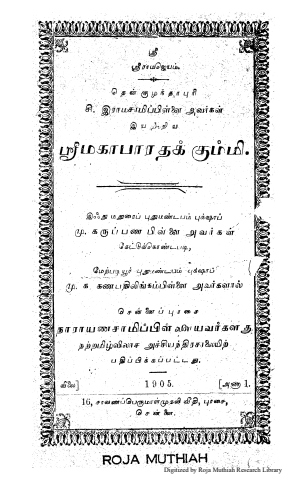 ஸ்ரீ
ஸ்ரீராமஜெயம்.
தென்குமுக்தாபுரி
சி. இராமசாமிப்பிள்ளை அவர்கள்
இயற்றிய
ஸ்ரீமகாபாரதக் கும்மி.
இஃது மதுரைப் புதுமண்டபம் புக்ஷாப்
மு. கருப்பண பிள்ளை அவர்கள்
கேட்டுக்கொண்டபடி,
மேற்படியூர் புதுமண்டபம் புக்ஷாப்
மு. க. கணபதிலிங்கப்பிள்ளை அவர்களால்
சென்னைப்புரசை
நாராயணசாமிப்பிள்ளையவர்களது
நற்றமிழ்விலாச அச்சியந்திரசாலையிற்
பதிப்பிக்கப்பட்டது.
விலை] 1905. [அணா 1.
16, சரவணப்பெருமாள்முதலி வீதி, புரசை,
சென்னை.
ROJA MUTHIAH
Digitized by Roja Muthiah Research Library